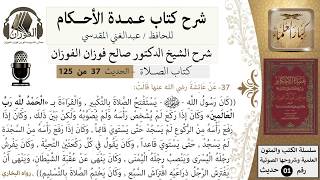 شرح كتاب عمدة الأحكام
للحافظ / عبدالغني المقدسي
شرح الشيخ الدكتور صالح فوزان الفوزان
كتاب الصلاة - الحديث 37 من 125
37- عن عائشة رضي الله عنها قالت:
((كان رسول الله ﷺ - يستفتح الصلاة بالتكبير، والقراءة بـ «الحمد لله رب
العالمين» وكان إذا ركع لم يشخص رأسه ولم يصوبه ولكن بين ذلك، وكان إذا رفع
رأسه من الركوع لم يسجد حتى يستوي قائما، وكان إذا رفع رأسه من
السجدة لم يسجد حتى يستوي قاعدا، وكان يقول في كل ركعتين التحية، وكان يفرش
رجله اليسرى وينصب رجله اليمنى، وكان ينهى عن عقبة الشيطان، وينهى أن
يفترش الرجل ذراعيه افتراش السبع، وكان يختم الصلاة بالتسليم))
الفوزان
سلسلة الكتب والمتون
العلمية وشروحها الصوتية
رقم 01 حديث